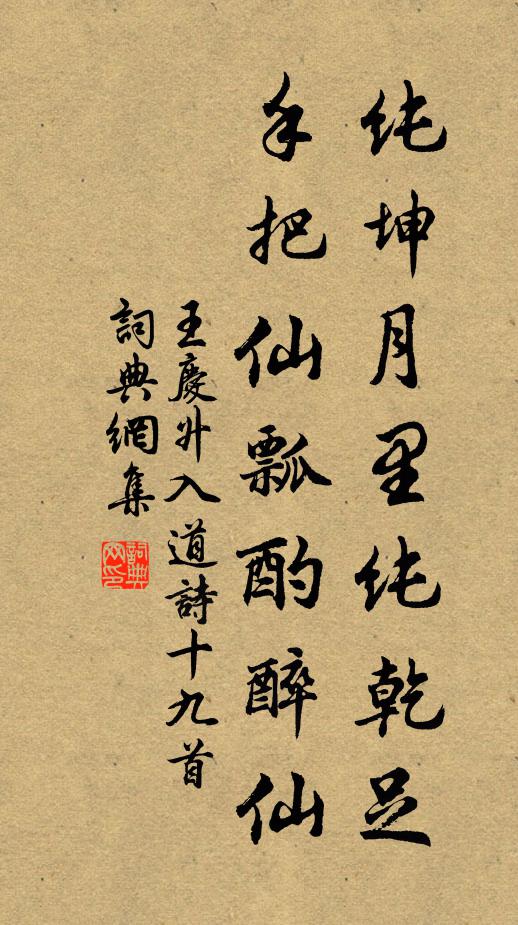 纯坤月里纯乾足
手把仙瓢酌醉仙
王慶升入道詩十九首
詞典網集
詞典網印